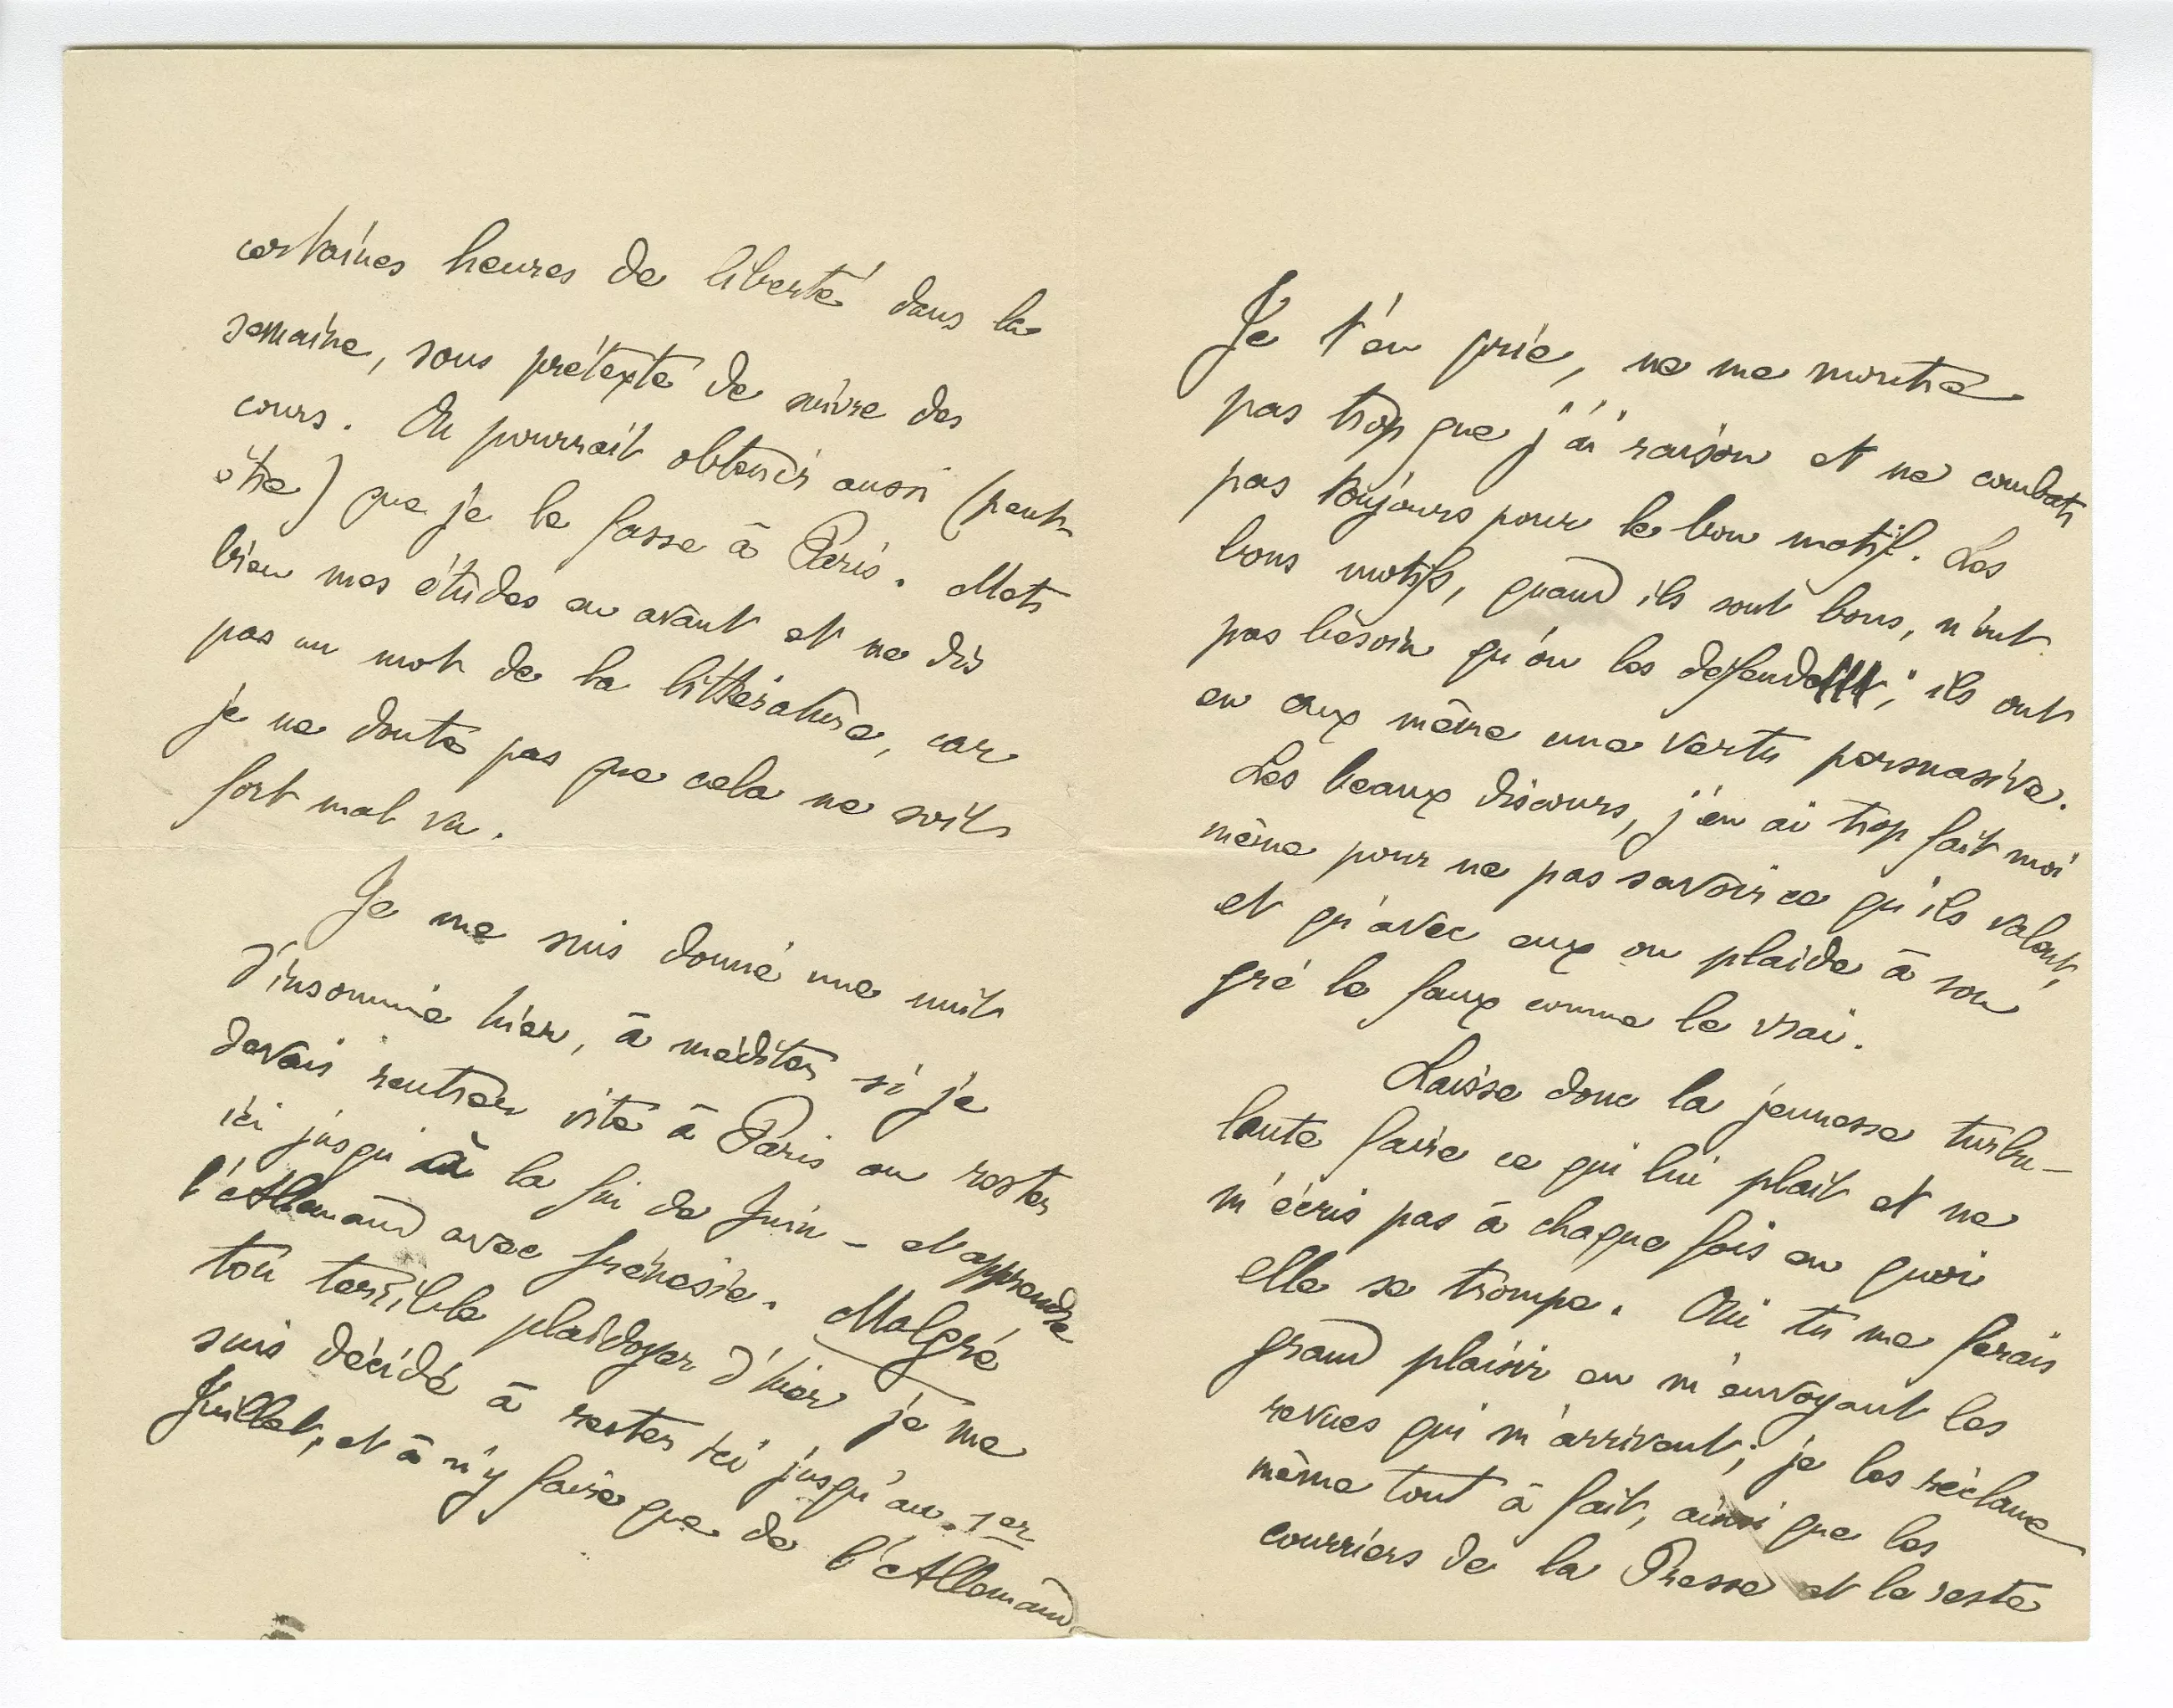 certaines heures de liberté dans la
semaine, sous prétexte de suivre des
cours. On pourrait obtenir aussi (peut-
être) que je le fasse à Paris. Mets
bien mes études en avant et ne dis
pas un mot de la littérature, car
je ne doute pas que cela ne soit
fort mal vu.
Je me suis donné une nuit
d'insomnie hier, à méditer si je
devais rentrer vite à Paris ou rester
ici jusqu'à la fin de Juin – et apprendre
l'Allemand avec frénésie. Malgré
ton terrible plaidoyer d'hier je me
suis décidé à rester ici jusqu'au 1er
Juillet, et à n'y faire que de l'Allemand.
Je t'en prie, ne me montre
pas trop que j'ai raison et ne combats
pas toujours pour le bon motif. Les
bons motifs, quand ils sont bons, n'ont
pas besoin qu'on les défende ; ils ont
en eux même une vertu persuasive.
Les beaux discours, j'en ai trop fait moi
même pour ne pas savoir ce qu'ils valent,
et qu'avec eux on plaide à son
gré le faux comme le vrai.
Laisse donc la jeunesse turbu-
lente faire ce qui lui plait et ne
m'écris pas à chaque fois en quoi
elle se trompe. Oui tu me ferais
grand plaisir en m'envoyant les
revues qui m'arrivent ; je les réclame
même tout à fait, ainsi que les
courriers de la Presse et le reste